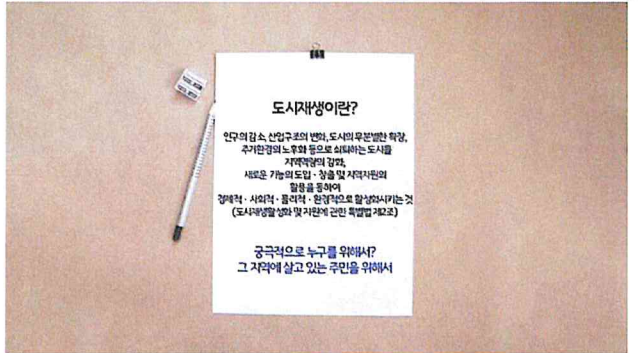 도시재생이란?
인구의 감소, 산업구조의 변화, 도시의 무분별한 확장,
주거환경의 노후화 등으로 쇠퇴하는 도시를
지역역량의 강화,
새로운 기능의 도입 · 창출 및 지역자원의
활용을 통하여
경제적 · 사회적 · 물리적 · 환경적으로 활성화시키는 것
(도시재생활성화 및 지원에 관한 특별법 제2조)
궁극적으로 누구를 위해서?
그 지역에 살고 있는 주민을 위해서